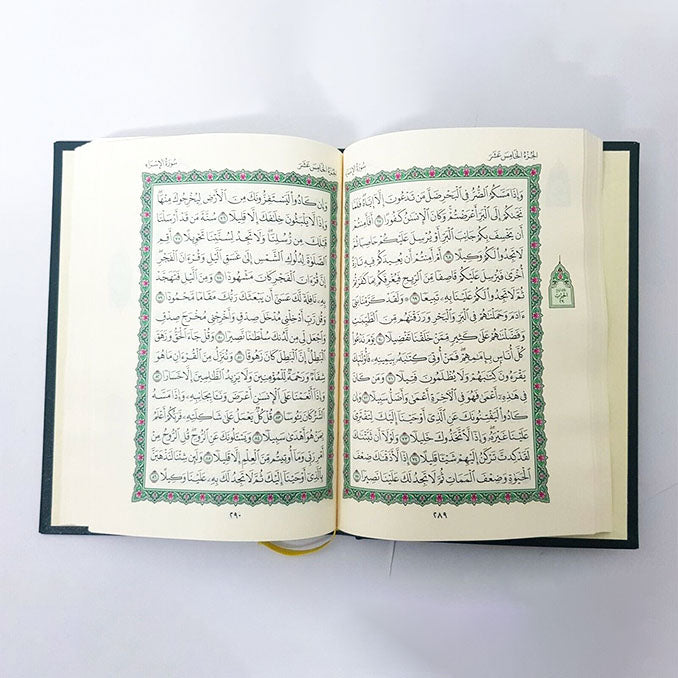 الجُزْءُ الخَامِسَ عَشَرَ
سُورَةُ الإِسْرَاءِ
وَإِذَا مَسَّكُمُ ٱلضُّرُّ فِي ٱلْبَحْرِ ضَلَّ مَن تَدْعُونَ إِلَّآ إِيَّاهُ فَلَمَّا
نَجَّىٰكُمْ إِلَى ٱلْبَرِّ أَعْرَضْتُمْ وَكَانَ ٱلْإِنسَٰنُ كَفُورًا ٦٧ أَفَأَمِنتُمْ
أَن يَخْسِفَ بِكُمْ جَانِبَ ٱلْبَرِّ أَوْ يُرْسِلَ عَلَيْكُمْ حَاصِبًا ثُمَّ
لَا تَجِدُوا۟ لَكُمْ وَكِيلًا ٦٨ أَمْ أَمِنتُمْ أَن يُعِيدَكُمْ فِيهِ تَارَةً
أُخْرَىٰ فَيُرْسِلَ عَلَيْكُمْ قَاصِفًا مِّنَ ٱلرِّيحِ فَيُغْرِقَكُم بِمَا كَفَرْتُمْ
ثُمَّ لَا تَجِدُوا۟ لَكُمْ عَلَيْنَا بِهِۦ تَبِيعًا ٦٩ ۞ وَلَقَدْ كَرَّمْنَا بَنِيٓ
ءَادَمَ وَحَمَلْنَٰهُمْ فِي ٱلْبَرِّ وَٱلْبَحْرِ وَرَزَقْنَٰهُم مِّنَ ٱلطَّيِّبَٰتِ
وَفَضَّلْنَٰهُمْ عَلَىٰ كَثِيرٍ مِّمَّنْ خَلَقْنَا تَفْضِيلًا ٧٠ يَوْمَ نَدْعُوا۟
كُلَّ أُنَاسٍۭ بِإِمَٰمِهِمْ فَمَنْ أُوتِيَ كِتَٰبَهُۥ بِيَمِينِهِۦ فَأُو۟لَٰٓئِكَ
يَقْرَءُونَ كِتَٰبَهُمْ وَلَا يُظْلَمُونَ فَتِيلًا ٧١ وَمَن كَانَ
فِي هَٰذِهِۦٓ أَعْمَىٰ فَهُوَ فِي ٱلْأَخِرَةِ أَعْمَىٰ وَأَضَلُّ سَبِيلًا ٧٢ وَإِن
كَادُوا۟ لَيَفْتِنُونَكَ عَنِ ٱلَّذِيٓ أَوْحَيْنَآ إِلَيْكَ لِتَفْتَرِيَ
عَلَيْنَا غَيْرَهُۥ وَإِذًا لَّٱتَّخَذُوكَ خَلِيلًا ٧٣ وَلَوْلَآ أَن ثَبَّتْنَٰكَ
لَقَدْ كِدتَّ تَرْكَنُ إِلَيْهِمْ شَيْـًٔا قَلِيلًا ٧٤ إِذًا لَّأَذَقْنَٰكَ ضِعْفَ
ٱلْحَيَوٰةِ وَضِعْفَ ٱلْمَمَاتِ ثُمَّ لَا تَجِدُ لَكَ عَلَيْنَا نَصِيرًا ٧٥
الحزب
٢٩
٢٨٩
الجُزْءُ الخَامِسَ عَشَرَ
سُورَةُ الإِسْرَاءِ
وَإِن كَادُوا۟ لَيَسْتَفِزُّونَكَ مِنَ ٱلْأَرْضِ لِيُخْرِجُوكَ مِنْهَا
وَإِذًا لَّا يَلْبَثُونَ خِلَٰفَكَ إِلَّا قَلِيلًا ٧٦ سُنَّةَ مَن قَدْ أَرْسَلْنَا
قَبْلَكَ مِن رُّسُلِنَا وَلَا تَجِدُ لِسُنَّتِنَا تَحْوِيلًا ٧٧ أَقِمِ
ٱلصَّلَوٰةَ لِدُلُوكِ ٱلشَّمْسِ إِلَىٰ غَسَقِ ٱلَّيْلِ وَقُرْءَانَ ٱلْفَجْرِ
إِنَّ قُرْءَانَ ٱلْفَجْرِ كَانَ مَشْهُودًا ٧٨ وَمِنَ ٱلَّيْلِ فَتَهَجَّدْ
بِهِۦ نَافِلَةً لَّكَ عَسَىٰٓ أَن يَبْعَثَكَ رَبُّكَ مَقَامًا مَّحْمُودًا ٧٩
وَقُل رَّبِّ أَدْخِلْنِي مُدْخَلَ صِدْقٍ وَأَخْرِجْنِي مُخْرَجَ صِدْقٍ
وَٱجْعَل لِّي مِن لَّدُنكَ سُلْطَٰنًا نَّصِيرًا ٨٠ وَقُلْ جَآءَ ٱلْحَقُّ وَزَهَقَ
ٱلْبَٰطِلُ إِنَّ ٱلْبَٰطِلَ كَانَ زَهُوقًا ٨١ وَنُنَزِّلُ مِنَ ٱلْقُرْءَانِ مَا هُوَ
شِفَآءٌ وَرَحْمَةٌ لِّلْمُؤْمِنِينَ وَلَا يَزِيدُ ٱلظَّٰلِمِينَ إِلَّا خَسَارًا ٨٢
وَإِذَآ أَنْعَمْنَا عَلَى ٱلْإِنسَٰنِ أَعْرَضَ وَنَـَٔا بِجَانِبِهِۦ وَإِذَا مَسَّهُ
ٱلشَّرُّ كَانَ يَـُٔوسًا ٨٣ قُلْ كُلٌّ يَعْمَلُ عَلَىٰ شَاكِلَتِهِۦ فَرَبُّكُمْ أَعْلَمُ
بِمَنْ هُوَ أَهْدَىٰ سَبِيلًا ٨٤ وَيَسْـَٔلُونَكَ عَنِ ٱلرُّوحِ قُلِ ٱلرُّوحُ مِنْ
أَمْرِ رَبِّي وَمَآ أُوتِيتُم مِّنَ ٱلْعِلْمِ إِلَّا قَلِيلًا ٨٥ وَلَئِن شِئْنَا لَنَذْهَبَنَّ
بِٱلَّذِيٓ أَوْحَيْنَآ إِلَيْكَ ثُمَّ لَا تَجِدُ لَكَ بِهِۦ عَلَيْنَا وَكِيلًا ٨٦
٢٩٠